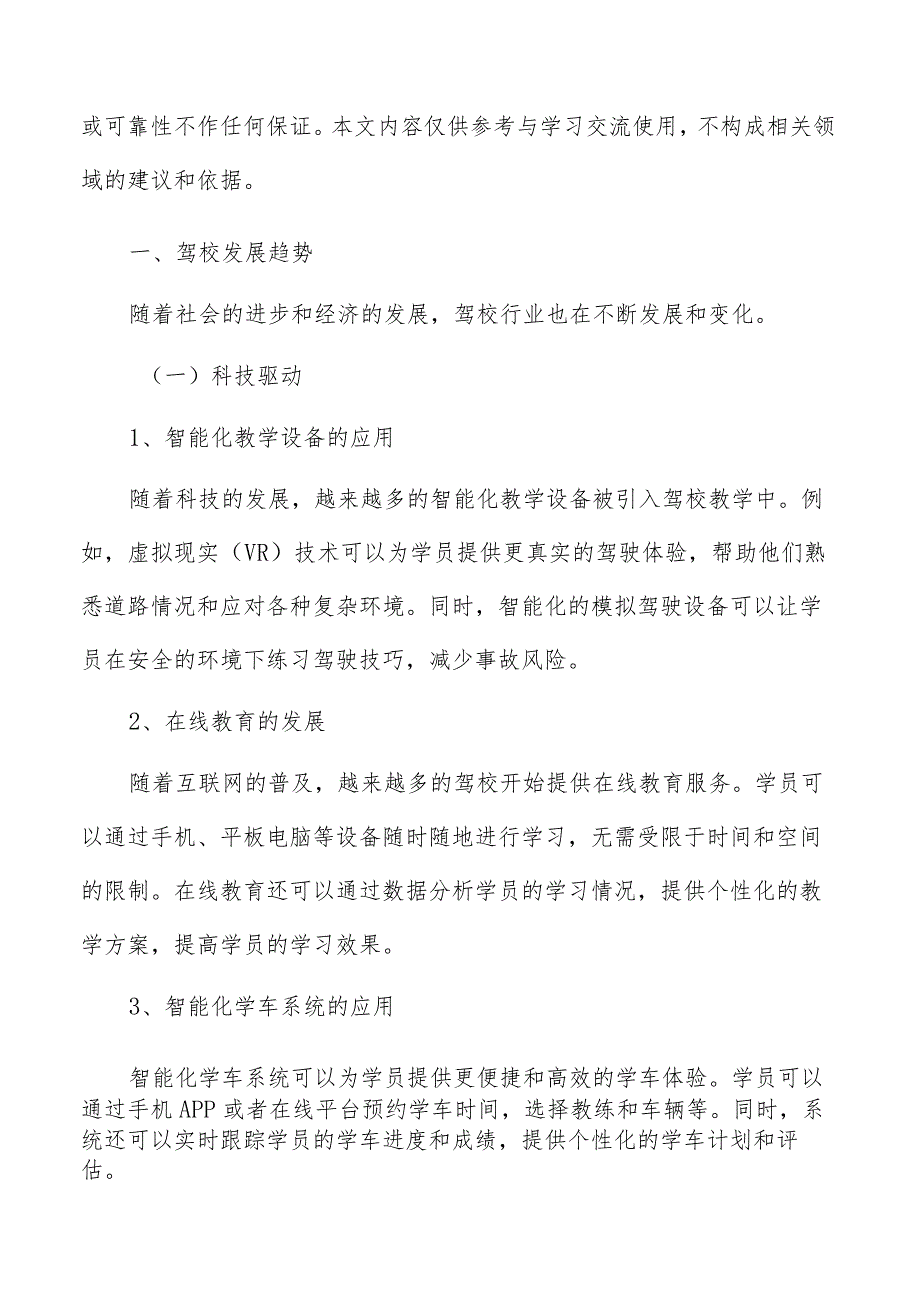 或可靠性不作任何保证。本文内容仅供参考与学习交流使用，不构成相关领
域的建议和依据。
一、驾校发展趋势
随着社会的进步和经济的发展，驾校行业也在不断发展和变化。
（一）科技驱动
1、智能化教学设备的应用
随着科技的发展，越来越多的智能化教学设备被引入驾校教学中。例
如，虚拟现实（VR）技术可以为学员提供更真实的驾驶体验，帮助他们熟
悉道路情况和应对各种复杂环境。同时，智能化的模拟驾驶设备可以让学
员在安全的环境下练习驾驶技巧，减少事故风险。
2、在线教育的发展
随着互联网的普及，越来越多的驾校开始提供在线教育服务。学员可
以通过手机、平板电脑等设备随时随地进行学习，无需受限于时间和空间
的限制。在线教育还可以通过数据分析学员的学习情况，提供个性化的教
学方案，提高学员的学习效果。
3、智能化学车系统的应用
智能化学车系统可以为学员提供更便捷和高效的学车体验。学员可以
通过手机 APP 或者在线平台预约学车时间，选择教练和车辆等。同时，系
统还可以实时跟踪学员的学车进度和成绩，提供个性化的学车计划和评
估。